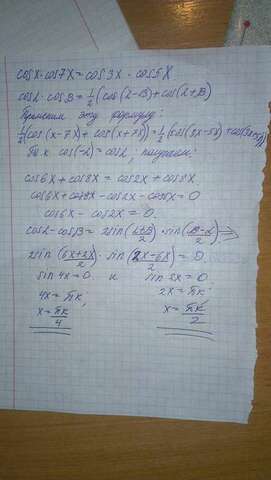 cosx·cos7x=cos3x·cos5x
cosα·cosβ=1/2(cos(α-β)+cos(α+β)
Применим эту формулу:
1/2(cos(x-7x)+cos(x+7x))=1/2(cos(3x-5x)+cos(3x+5x))
cos(-α)=cosα, получаем:
cos6x+cos8x=cos2x+cos8x
cos6x+cos8x-cos2x-cos8x=0
cos6x-cos2x=0.
cosα-cosβ=2sin(α+β/2)·sin(β-α/2)⇒
2sin(6x+2x/2)·sin(2x-6x/2)=0
sin4x=0 и sin2x=0
4x=πk, 2x=πk
x=πk/4 x=πk/2